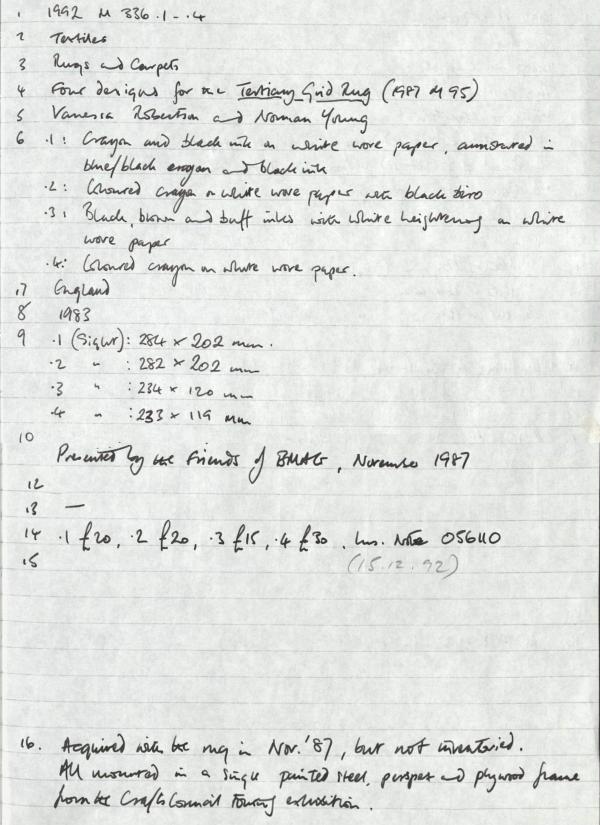 1 1992 M 336.1-.4
2 Textiles
3 Rugs and Carpets
4 Four designs for the Tertiary Grid Rug (1987 M 95)
5 Vanessa Robertson and Norman Young
6 .1: Crayon and black ink on white wove paper, annotated in
blue/black crayon and black ink
.2: Coloured crayon on white wove paper with black biro
.3: Black, brown and buff inks with white heightening on white
wove paper
.4: Coloured crayon on white wove paper.
.7 England
8 1983
9 .1 (Sight): 284 x 202 mm.
.2 " : 282 x 202 mm
.3 " : 234 x 120 mm
.4 " : 233 x 119 mm
10
Presented by the Friends of BMAG, November 1987
12
13 —
14 .1 £20, .2 £20, .3 £15, .4 £30. Ins. Note 056110
15 (15.12.92)
16. Acquired with the rug in Nov. '87, but not inventoried.
All mounted in a single painted steel, perspex and plywood frame
from the Crafts Council Touring exhibition.